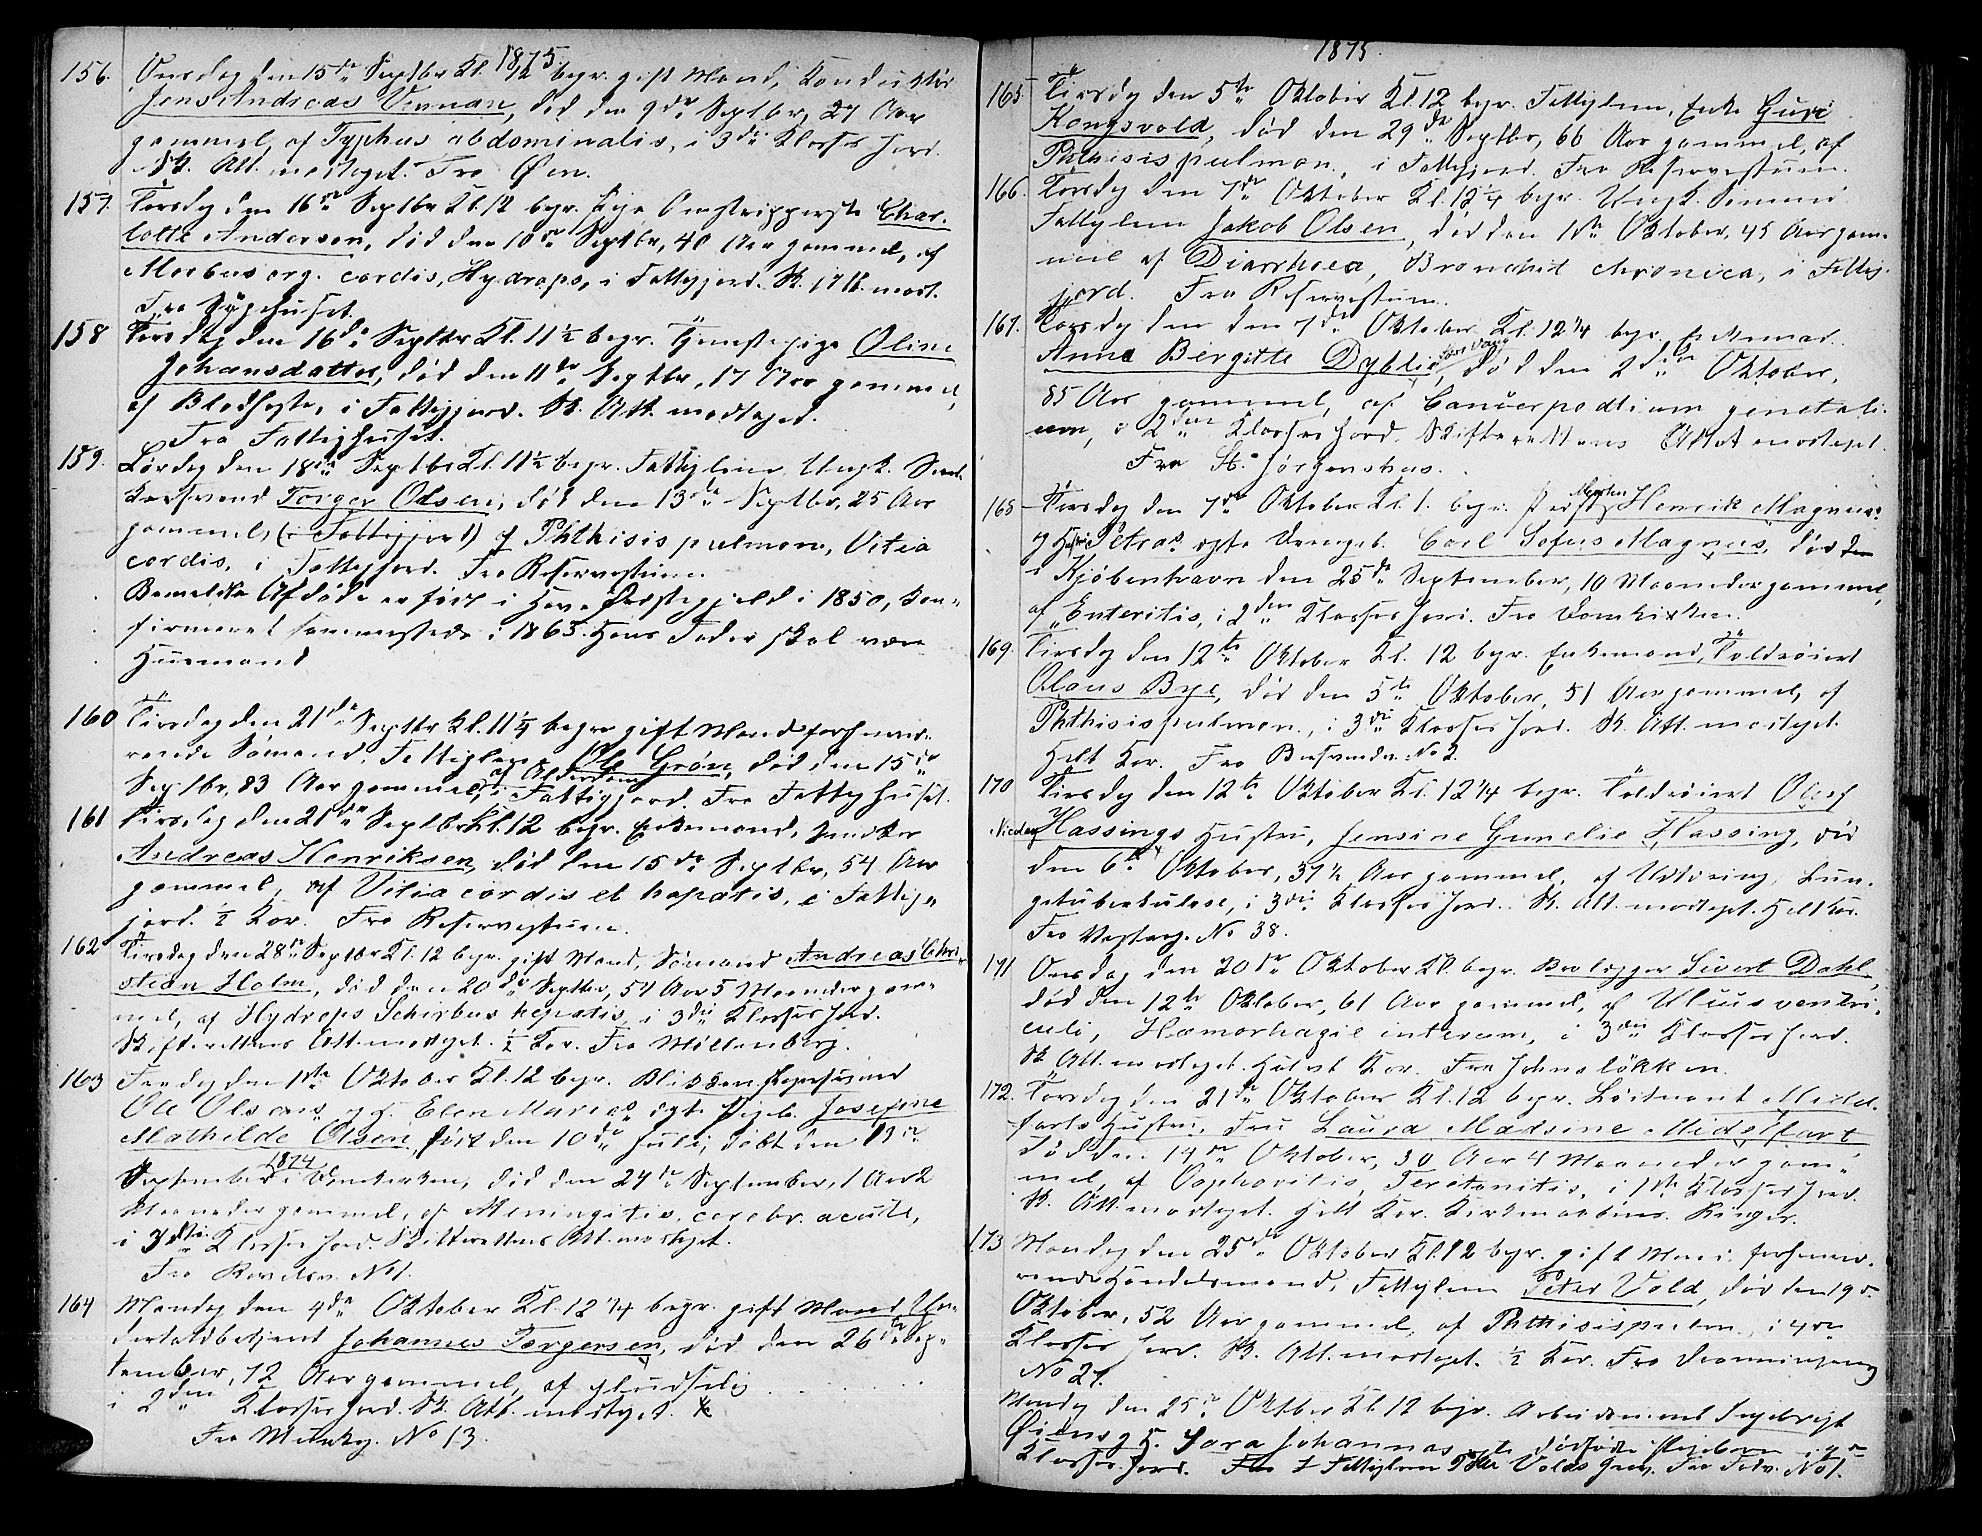 1875.
156. Onsdag den 15de Septbr Kl. 12 begr. gift Mand, Konduktør
Jens Andreas Vennan, død den 9de Septbr, 27 Aar
gammel, af Typhus abdominalis, i 3die Klasses Jord.
Sk. Att. modtaget. Fra Øen.
157. Torsdag den 16de Septbr Kl. 12 begr. Pige Omstripperske Char-
lotte Andersen, død den 10de Septbr, 40 Aar gammel, af
Morbus org. cordis, Hydrops, i Fattigjord. Sk. Att. modt.
Fra Sygehuset.
158 Torsdag den 16de Septbr Kl. 11½ begr. Tjenestepige Oline
Johansdatter, død den 11te Septbr, 17 Aar gammel,
af Blodhoste, i Fattigjord. Sk. Att. modtaget.
Fra Fattighuset.
159. Lørdag den 18de Septbr Kl. 11½ begr. Fattiglem Ungk.
Torger Olsen, død den 13de Septbr, 25 Aar
gammel, (i Fattigjord) af Phthisis pulmon, Vitia
cordis, i Fattigjord. Fra Reservestuen.
Bemeldte Afdøde er født i Præstegjeld i 1850, kon-
firmeret sammesteds i 1865. Hans Fader skal være
Husmand
160 Tirsdag den 21de Septbr Kl. 11½ begr. gift Mand forhenvæ-
rende Sømand, Fattiglem Ole Grøn, død den 15de
Septbr, 83 Aar gammel, af Alderdom i Fattigjord. Fra Fattighuset.
161 Tirsdag den 21de Septbr Kl. 12 begr. Enkemand, Snedker
Andreas Henriksen, død den 15de Septbr, 54 Aar
gammel, af Vitia cordis et hepatis, i Fattig-
jord. ½ Kor. Fra Reservestuen.
162 Tirsdag den 28de Septbr Kl. 12 begr. gift Mand, Sømand Andreas Chri-
stian Holm, død den 20de Septbr, 54 Aar 5 Maaneder gam-
mel, af Hydrops Schirbus hepatis, i 3die Klasses Jord.
Skifterettens Att. modtaget. ½ Kor. Fra Møllenberg.
163 Fredag den 1ste Oktober Kl. 12 begr.
Ole Olsens og H. Elen Marias ægte Pigeb. Josefine
Mathilde Olsen, født den 10de Juli, døbt den
September 1874 i Domkirken, død den 24de September, 1 Aar 2
Maaneder gammel, af Meningitis cerebr. acuta,
i 3die Klasses Jord. Skifterettens Att. modtaget.
Fra No 1.
164 Mandag den 4de Oktober Kl. 12¼ begr. gift Mand, Un-
dertoldbetjent Johannes Torgersen, død den 26de Sep-
tember, 72 Aar gammel, af
i 2den Klasses Jord. Sk. Att. modtaget.
Fra No 13.
1875.
165 Tirsdag den 5te Oktober Kl. 12 begr. Fattiglem, Enke Guri
Kongsvold, død den 29de Septbr, 66 Aar gammel, af
Phthisis pulmon., i Fattigjord. Fra Reservestuen.
166. Torsdag den 7de Oktober Kl. 12¼ begr. Ungk. Sømand
Fattiglem Jakob Olsen, død den 1ste Oktober, 45 Aar gam-
mel af Diarrhoea, Bronchit chronica, i Fattig-
jord. Fra Reservestuen.
167. Torsdag den den 7de Oktober Kl. 12¼ begr. Enkemad.
Anna Birgitte Dyblie, død den 2den Oktober,
85 Aar gammel, af genetali-
um, i 2den Klasses Jord. Skifterettens Att modtaget.
Fra St. Jørgenshus.
168 Torsdag den 7de Oktober Kl. 1. begr. Morten Henrik Magnus
og H. Petras ægte Drengeb. Carl Sofus Magnus, død
i Kjøbenhavn den 25de September, 10 Maaneder gammel,
af Enteritis, i 2den Klasses Jord. Fra Domkirken.
169. Tirsdag den 12te Oktober Kl. 12 begr. Enkemand, Toldrøiert
Olaus Bye, død den 5te Oktober, 51 Aar gammel, af
Phthisis pulmon., i 3die Klasses Jord. Sk. Att. modtaget.
Helt Kor. Fra No 2.
170 Tirsdag den 12te Oktober Kl. 12¼ begr. Toldrøiert Oluf
Nicolay Hassings Hustru, Jensine Gunelie Hassing, død
den 6te Oktober, 37½ Aar gammel, af Udtæring, Lun-
getuberkulose, i 3die Klasses Jord. Sk. Att. modtaget. Helt Kor.
Fra No 38.
171 Onsdag den 20de Oktober Kl. begr. Brolægger Sivert Dahl,
død den 12te Oktober, 61 Aar gammel, af Ulcus ventri-
culi, Hæmorhagie internam, i 3die Klasses Jord.
Sk. Att. modtaget. Halvt Kor. Fra Johnsløkken.
172. Torsdag den 21de Oktober Kl. 12 begr. Løitnant Midel-
farts Hustru, Fru Laura Madsine Midelfart,
død den 14de Oktober, 30 Aar 4 Maaneder gam-
mel, af Oophoritis, i 1ste Klasses Jord.
Sk. Att. modtaget. Helt Kor.
173 Mandag den 25de Oktober Kl. 12 begr. gift Mand, forhenvæ-
rende Handelsmand, Fattiglem Peter Vold, død den 19de
Oktober, 52 Aar gammel, af Phthisis pulm., i 4de
Klasses Jord. Sk. Att. modtaget. ½ Kor. Fra Dronningens
No 27.
Mandag den 25de Oktbr Kl. 12 begr. Arbeidsmand Ingebrigt
Øiens og H. Sara Johannas ægte dødfødte Pigebarn i 4de
Klasses Jord. Fra I Fattiglem Peter Volds Grav. Fra No 1.